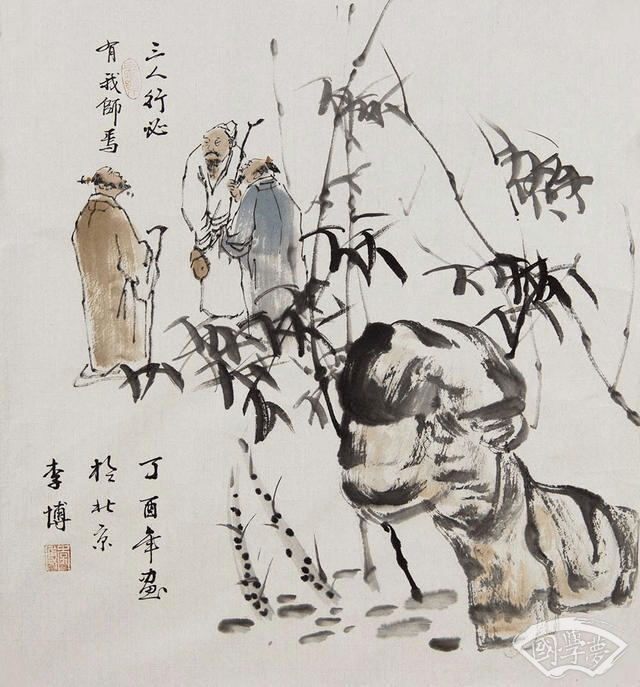 三人行必
有我師焉
丁酉年画
於北京
李博
國學夢